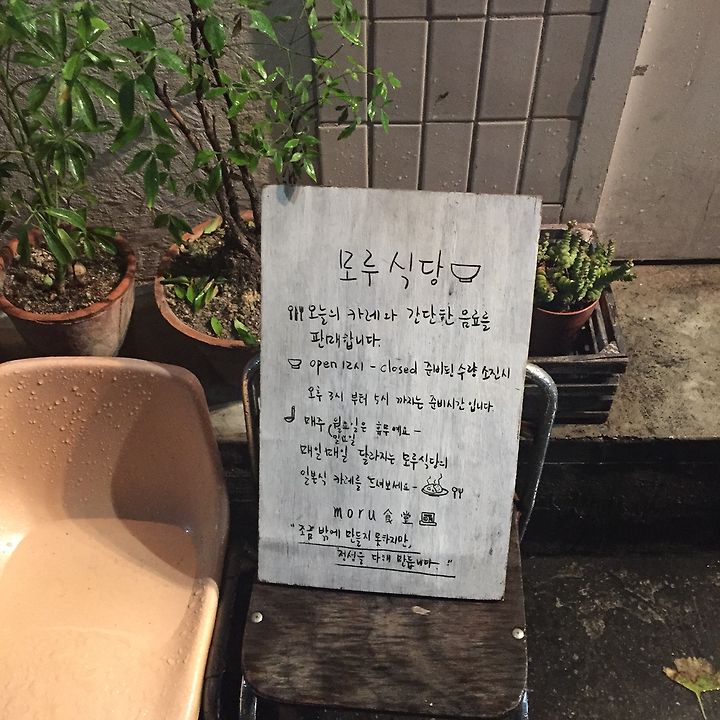 모루식당
오늘의 카레와 간단한 음료를
판매합니다.
open 12시 - closed 준비된 수량 소진시
오후 3시 부터 5시 까지는 준비시간 입니다.
매주 월요일은 휴무예요 -
일요일
매일매일 달라지는 모루식당의
일본식 카레를 드셔보세요 -
moru 食堂
"조금 밖에 만들지 못하지만,
정성을 다해 만듭니다."